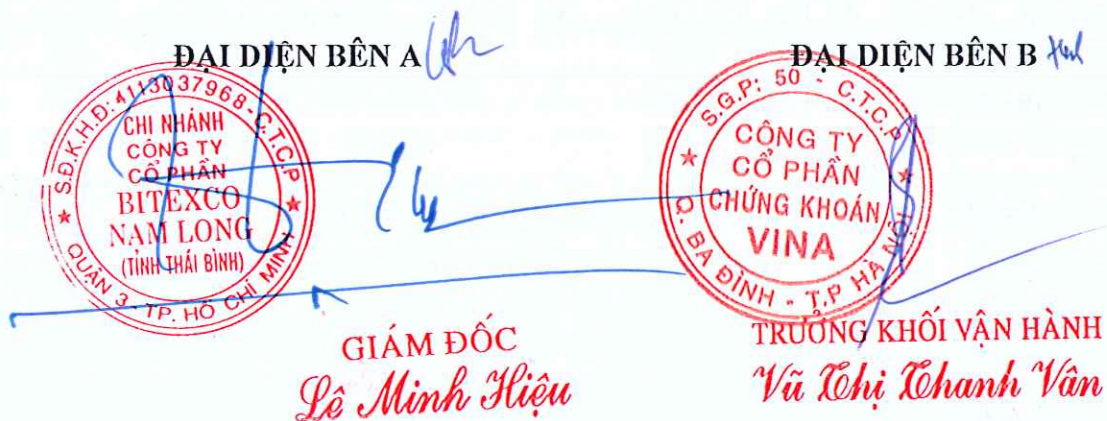 ĐẠI DIỆN BÊN A
S.Đ.K.H.Đ: 4113037968 - C.T.C.P
CHI NHÁNH
CÔNG TY
CỔ PHẦN
BITEXCO
NAM LONG
(TỈNH THÁI BÌNH)
QUẬN 3 - TP. HỒ CHÍ MINH
GIÁM ĐỐC
Lê Minh Hiệu
ĐẠI DIỆN BÊN B
S.G.P: 50 - C.T.C.P
CÔNG TY
CỔ PHẦN
CHỨNG KHOÁN
VINA
Q. BA ĐÌNH - T.P HÀ NỘI
TRƯỞNG KHỐI VẬN HÀNH
Vũ Thị Thanh Vân